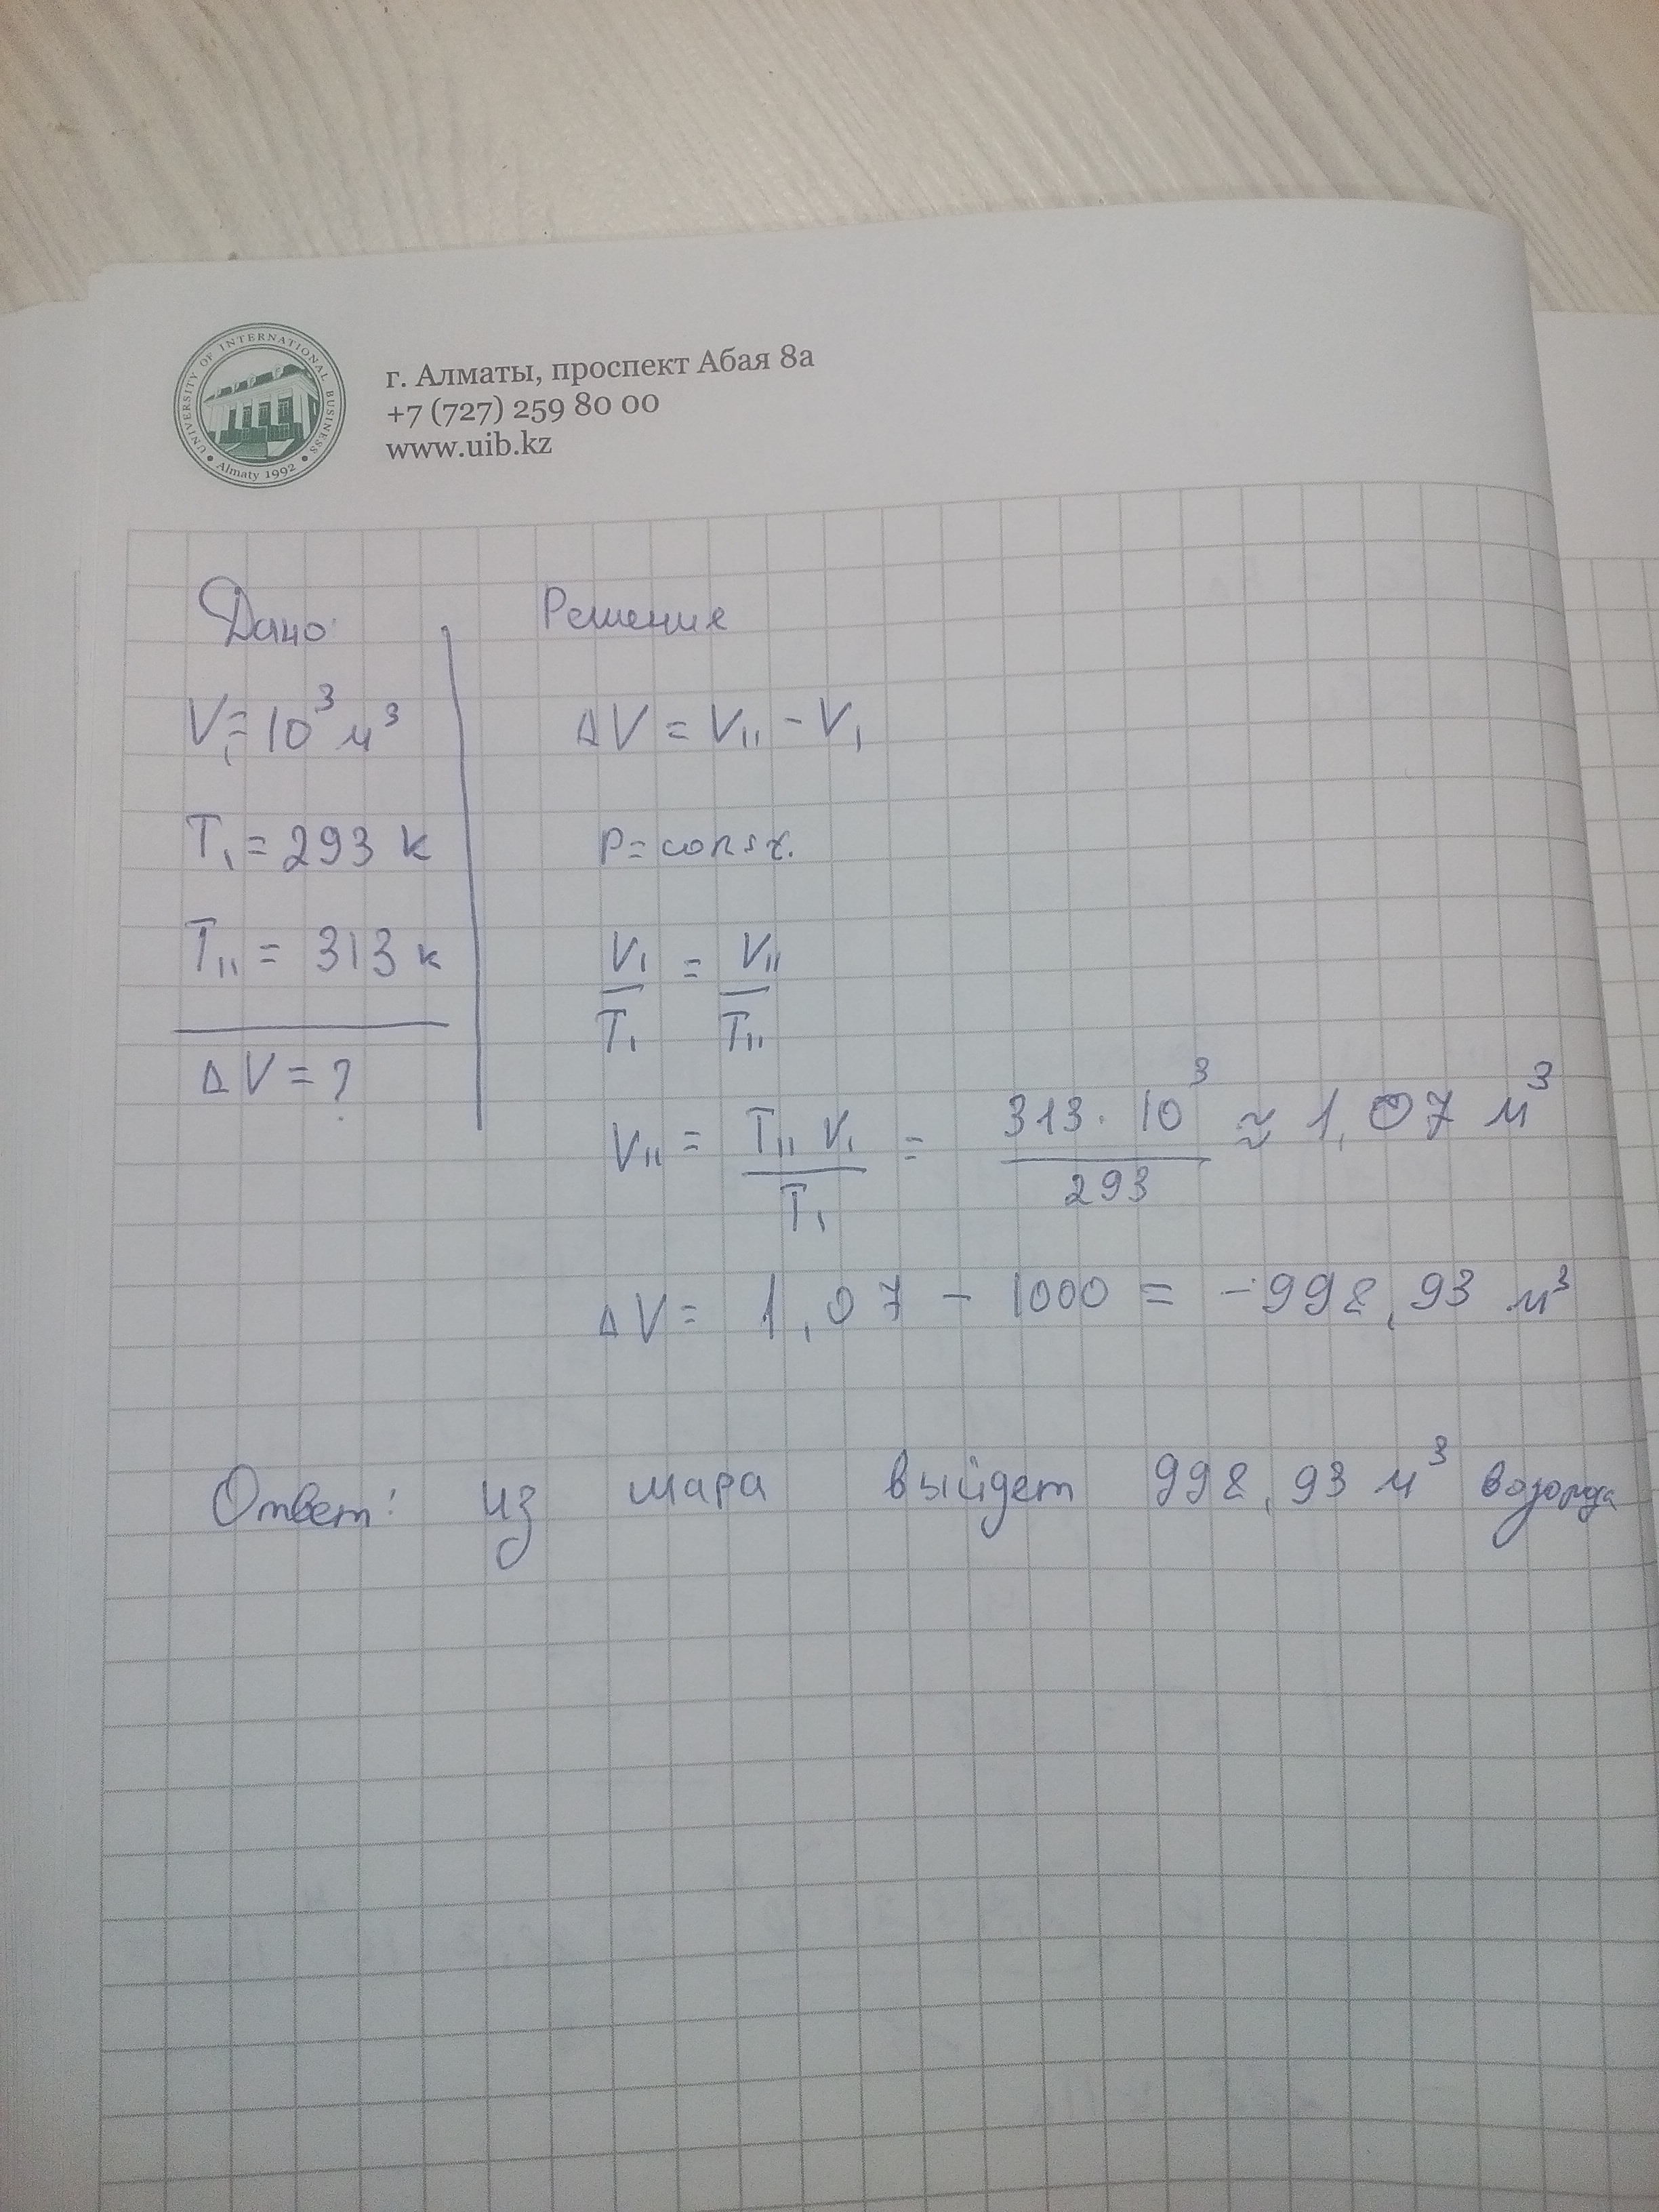 UNIVERSITY OF INTERNATIONAL BUSINESS
• Almaty 1992 •
г. Алматы, проспект Абая 8а
+7 (727) 259 80 00
www.uib.kz
Дано Решение
V₁ = 10³ м³ ΔV = V₁₁ - V₁
T₁ = 293 К P = const.
T₁₁ = 313 К V₁/T₁ = V₁₁/T₁₁
ΔV = ?
V₁₁ = T₁₁ V₁ / T₁ = 313 · 10³ / 293 ≈ 1,07 м³
ΔV = 1,07 - 1000 = -998,93 м³
Ответ: из шара выйдет 998,93 м³ водорода